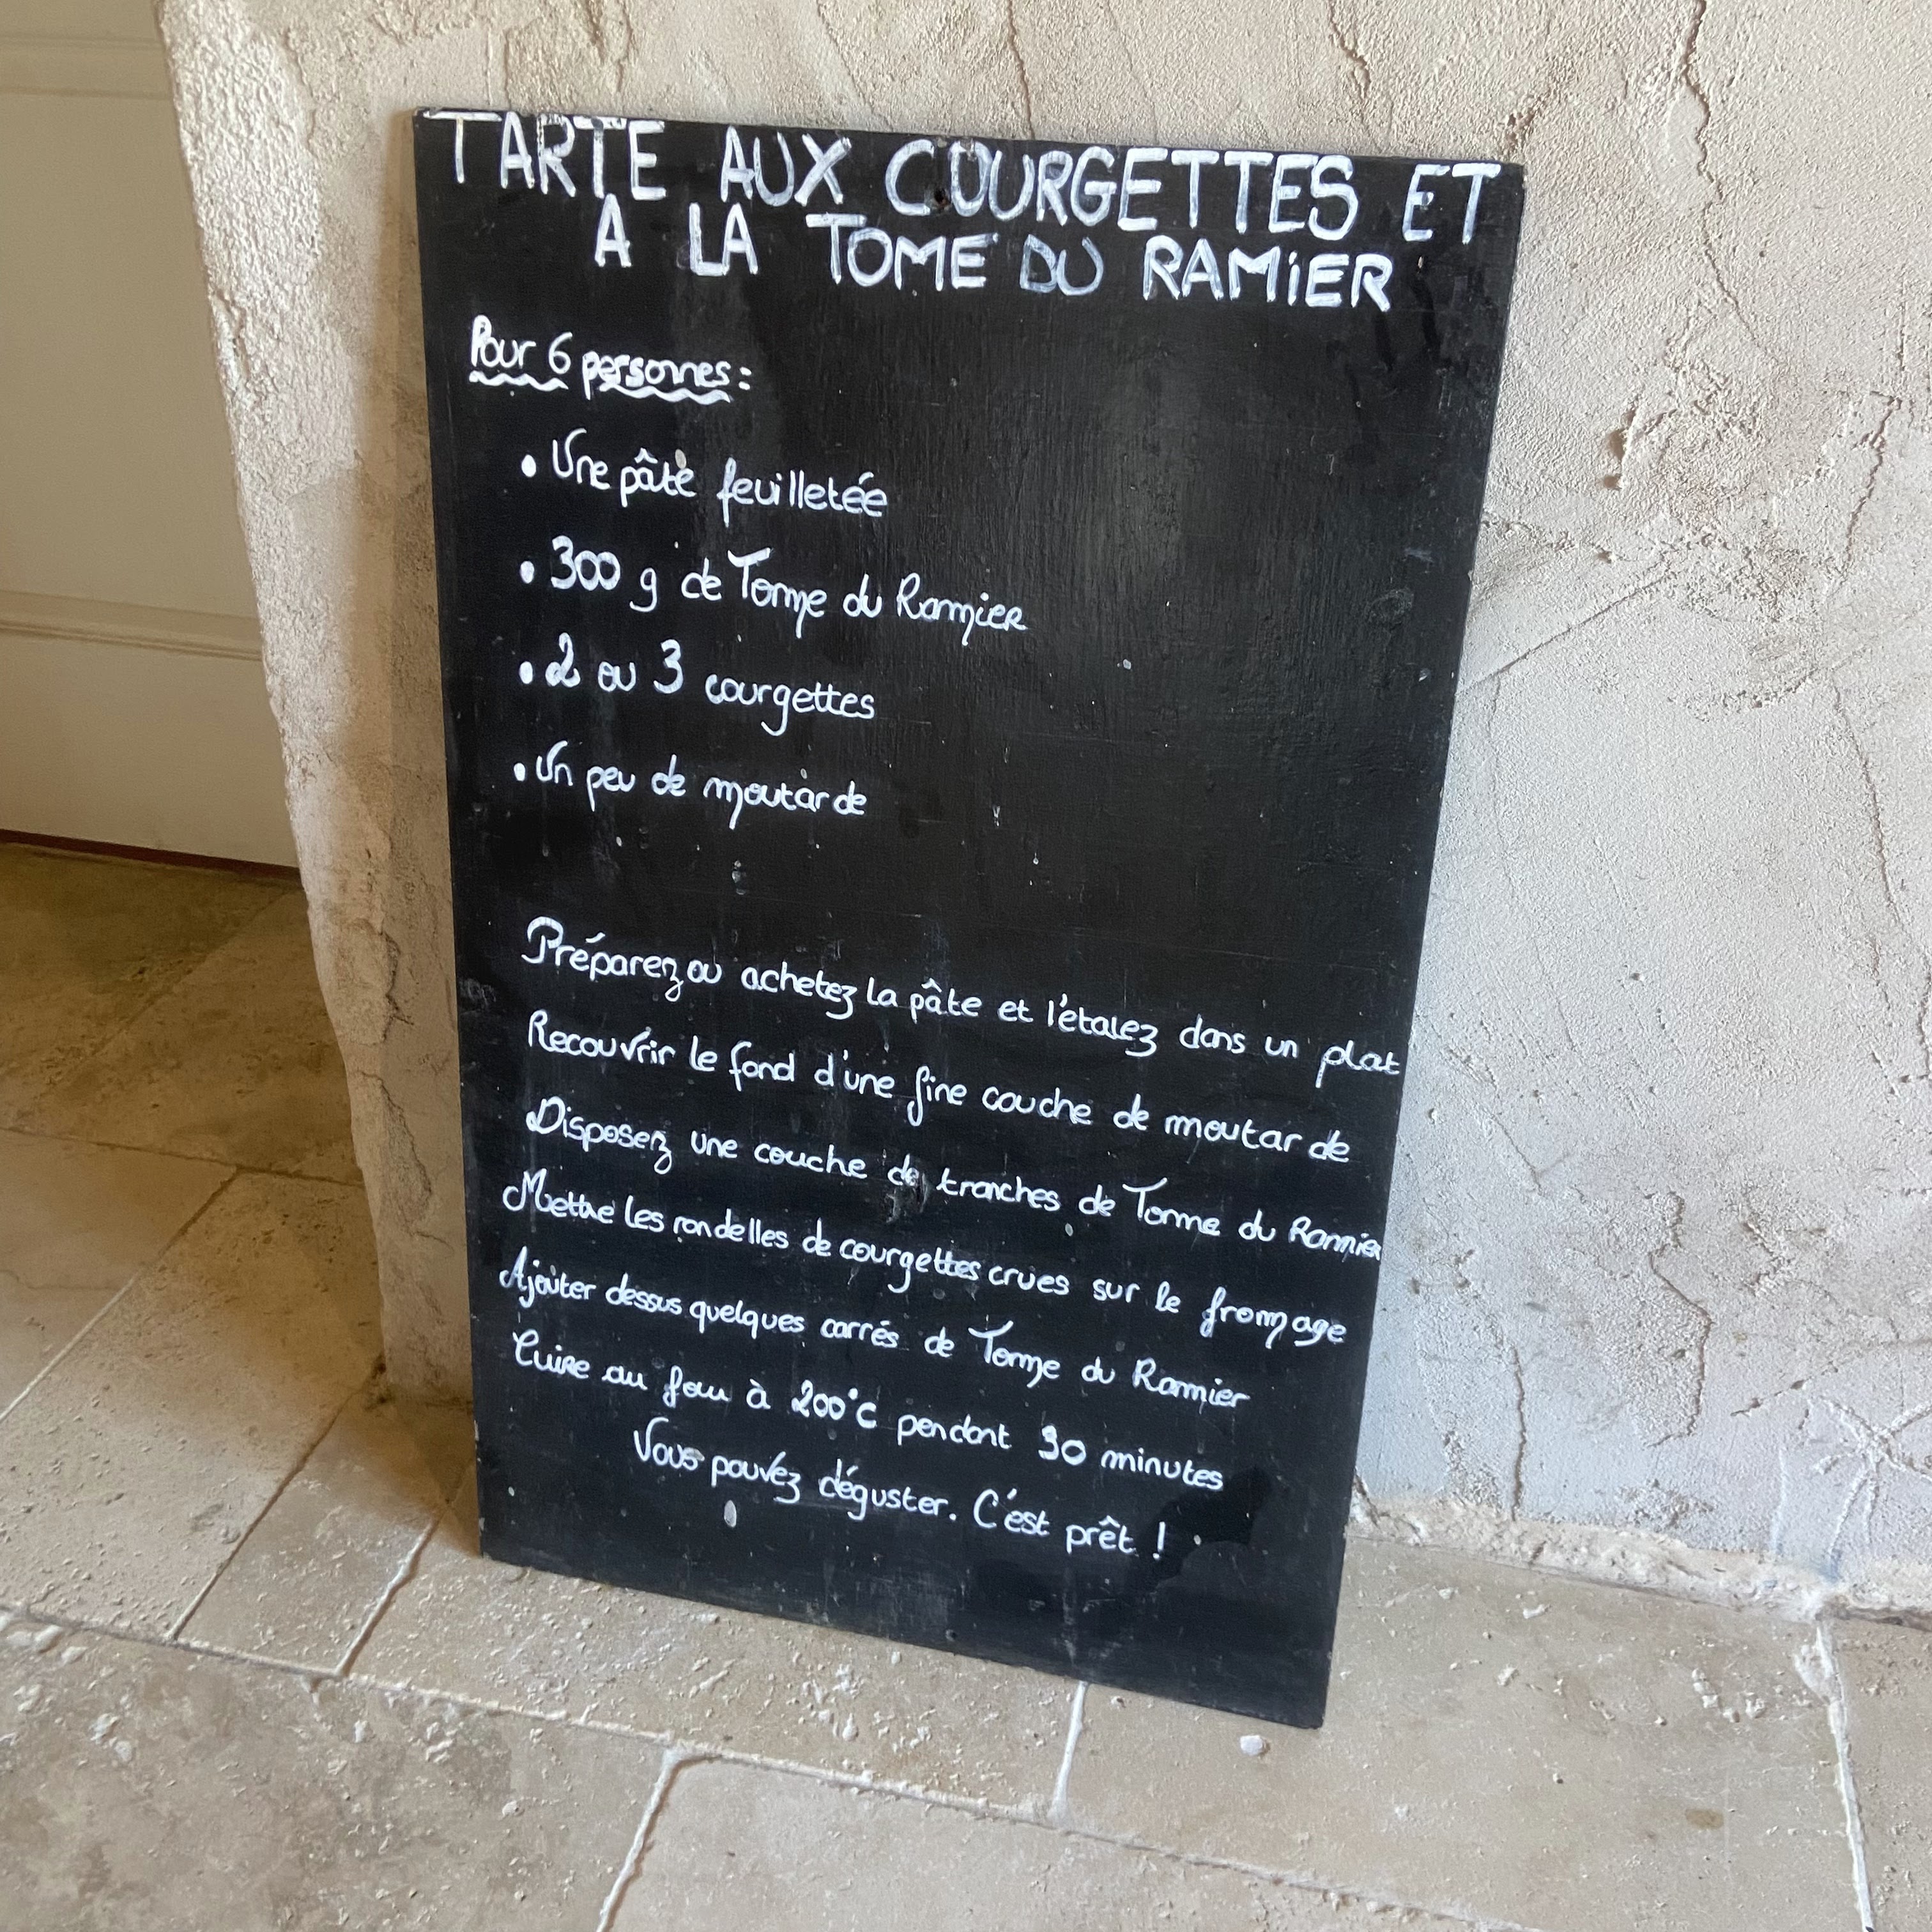 TARTE AUX COURGETTES ET
A LA TOME DU RAMiER
Pour 6 personnes :
• Une pâte feuilletée
• 300 g de Tomme du Ramier
• 2 ou 3 courgettes
• Un peu de moutarde
Préparez ou achetez la pâte et l'étalez dans un plat
Recouvrir le fond d'une fine couche de moutarde
Disposez une couche de tranches de Tomme du Ramier
Mettre les rondelles de courgettes crues sur le fromage
Ajouter dessus quelques carrés de Tomme du Ramier
Cuire au four à 200°C pendant 30 minutes
Vous pouvez déguster. C'est prêt !